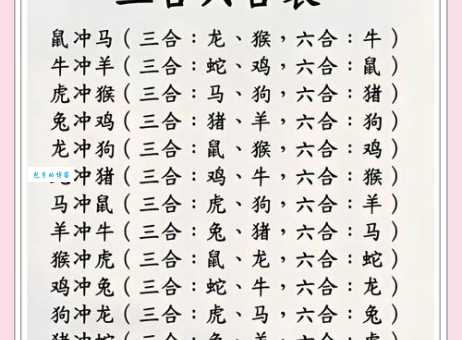 三合六合表
鼠冲马（三合：龙、猴，六合：牛）
牛冲羊（三合：蛇、鸡，六合：鼠）
虎冲猴（三合：马、狗，六合：猪）
兔冲鸡（三合：猪、羊，六合：狗）
龙冲狗（三合：鼠、猴，六合：鸡）
冲猪（三合：鸡、牛，六合：猴）
马冲鼠（三合：虎、狗，六合：羊）
羊冲牛（三合：兔、猪，六合：马）
猴冲虎（三合：鼠、龙，六合：蛇）
鸡冲兔（三合：蛇、牛，六合：龙）
狗冲龙（三合：虎、马，六合：兔）
猪冲蛇（三合：兔、羊，六合：虎）